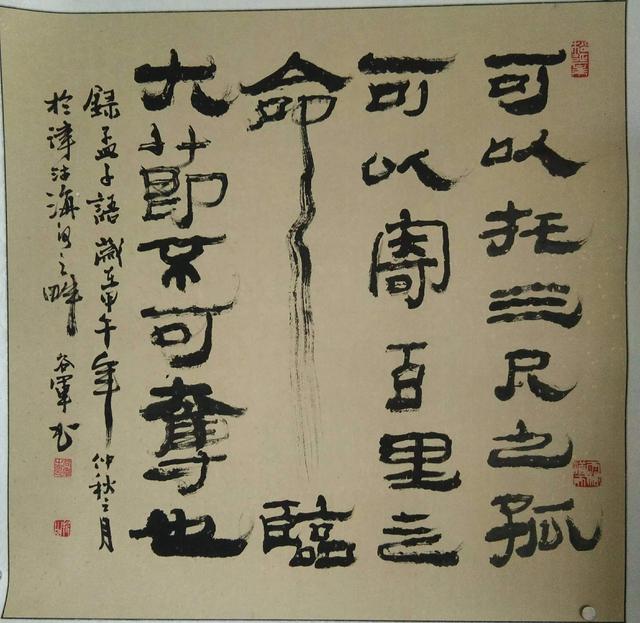 可以托三尺之孤
可以寄百里之
命臨
大節不可奪也
錄孟子語歲在甲午年仲秋之月
於津沽海河之畔 谷軍书